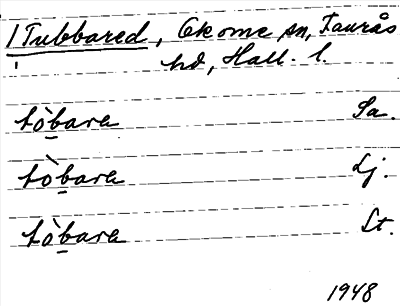 /Tubbared, Okome sn, Faurås
hd, Hall. l.
tò̱bara Sa.
tò̱bara Lj.
tò̱bara St.
1948